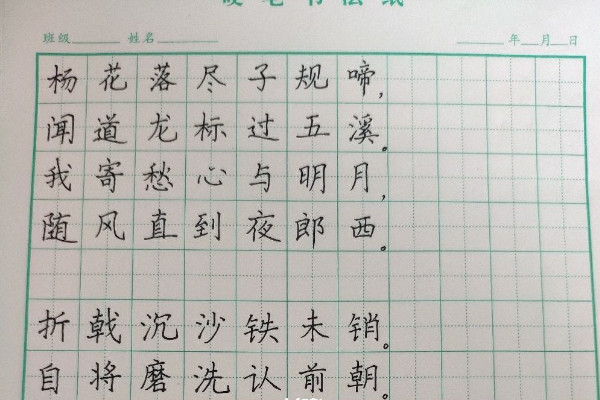 硬笔书法纸
班级 姓名 年 月 日
杨花落尽子规啼，
闻道龙标过五溪。
我寄愁心与明月，
随风直到夜郎西。
折戟沉沙铁未销。
自将磨洗认前朝。